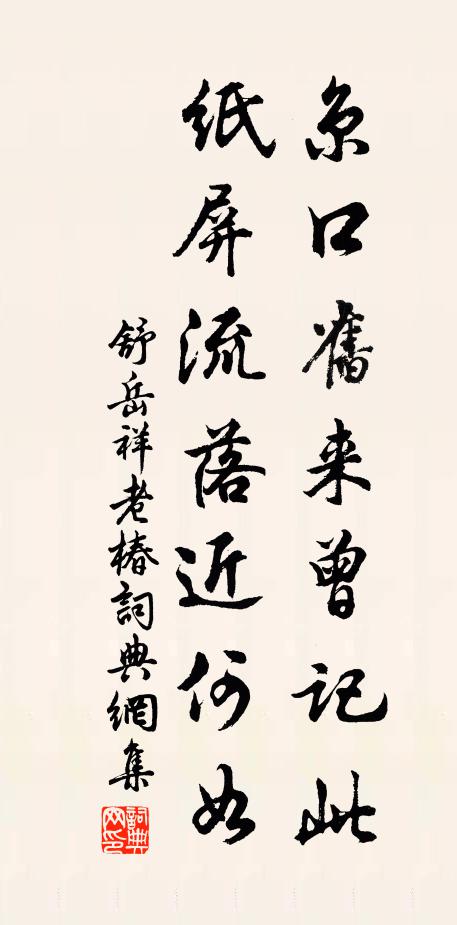 京口舊来曾记此
紙屏流落近何如
舒岳祥老椿詞典網集
詞典網印